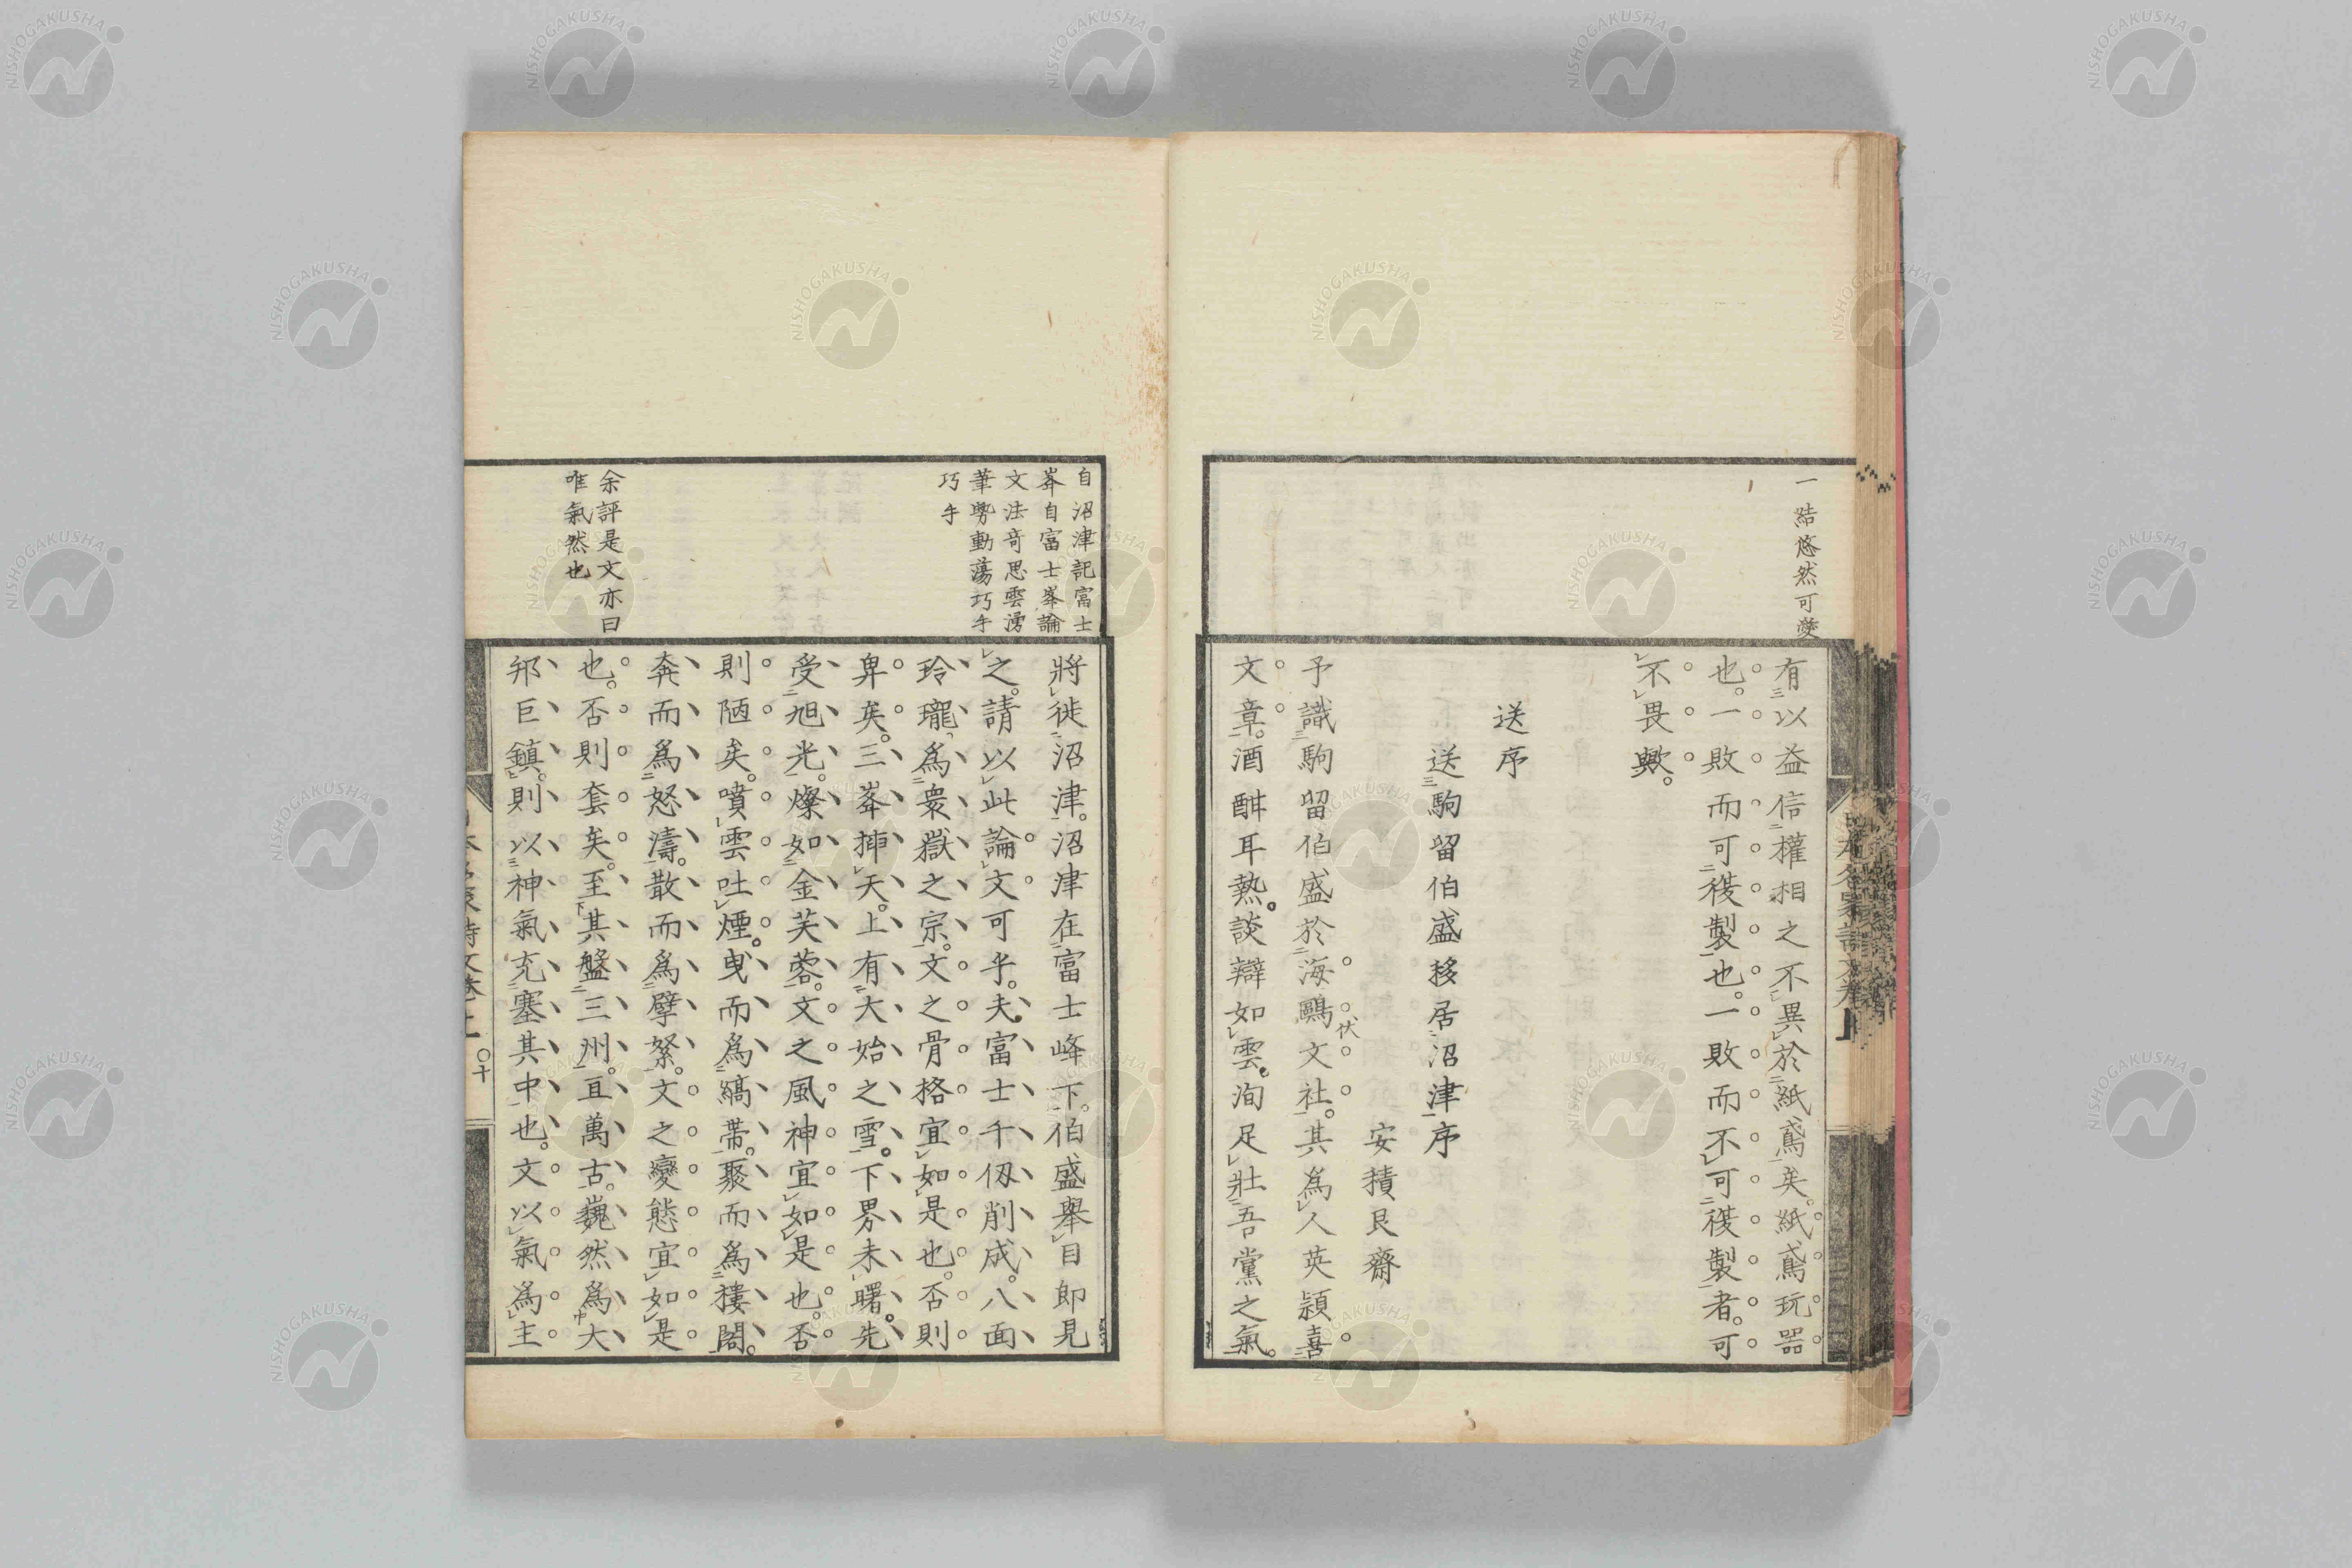 一結悠然可愛
有以益信權相之不異於紙鳶矣。紙鳶玩器
也。一敗而可復製也。一敗而不可復製者。可
不畏歟。
送序
送駒留伯盛移居沼津序
安積艮齋
予識駒留伯盛於海鷗文社。其爲人英潁喜
伏
文章。酒酣耳熱。談辯如雲。洵足壯吾黨之氣。
自沼津記富士
峯自富士峯論
文法竒思雲湧
筆勢動蕩巧手
巧手
余評是文亦曰
唯氣然也
將徙沼津。沼津在富士峰下。伯盛舉目卽見
之。請以此論文可乎。夫富士千仭削成。八面
玲瓏爲衆嶽之宗。文之骨格宜如是也。否則
卑矣。三峯挿天。上有大始之雪。下界未曙。先
受旭光。燦如金芙蓉。文之風神宜如是也。否
則陋矣。噴雲吐煙。曳而爲縞帶。聚而爲樓閣。
奔而爲怒濤。散而爲擘絮。文之變態宜如是
也。否則套矣。至其盤三州。亘萬古。巍然爲大
邦巨鎭。則以神氣充塞其中也。文以氣爲主
十
NISHOGAKUSHA